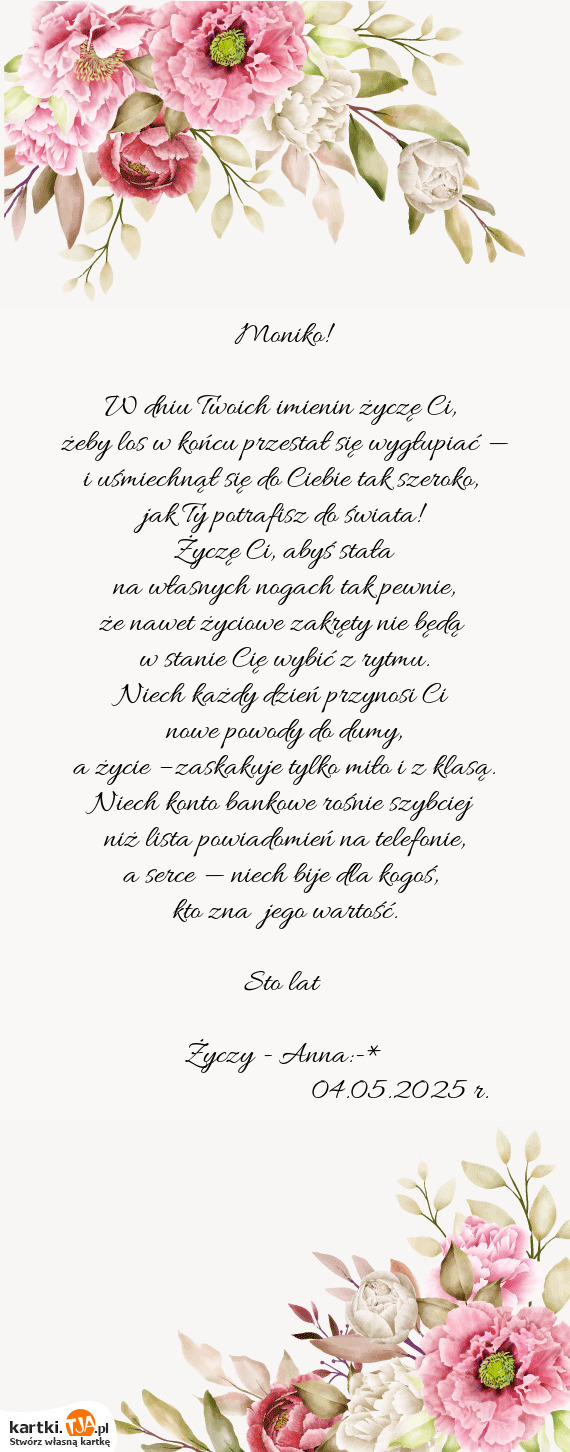 Moniko!
W dniu Twoich imienin życzę Ci,
żeby los w końcu przestał się wygłupiać –
i uśmiechnął się do Ciebie tak szeroko,
jak Ty potrafisz do świata!
Życzę Ci, abyś stała
na własnych nogach tak pewnie,
że nawet życiowe zakręty nie będą
w stanie Cię wybić z rytmu.
Niech każdy dzień przynosi Ci
nowe powody do dumy,
a życie –zaskakuje tylko miło i z klasą.
Niech konto bankowe rośnie szybciej
niż lista powiadomień na telefonie,
a serce – niech bije dla kogoś,
kto zna jego wartość.
Sto lat
Życzy - Anna:-*
04.05.2025 r.
kartki.TJA.pl
Stwórz własną kartkę